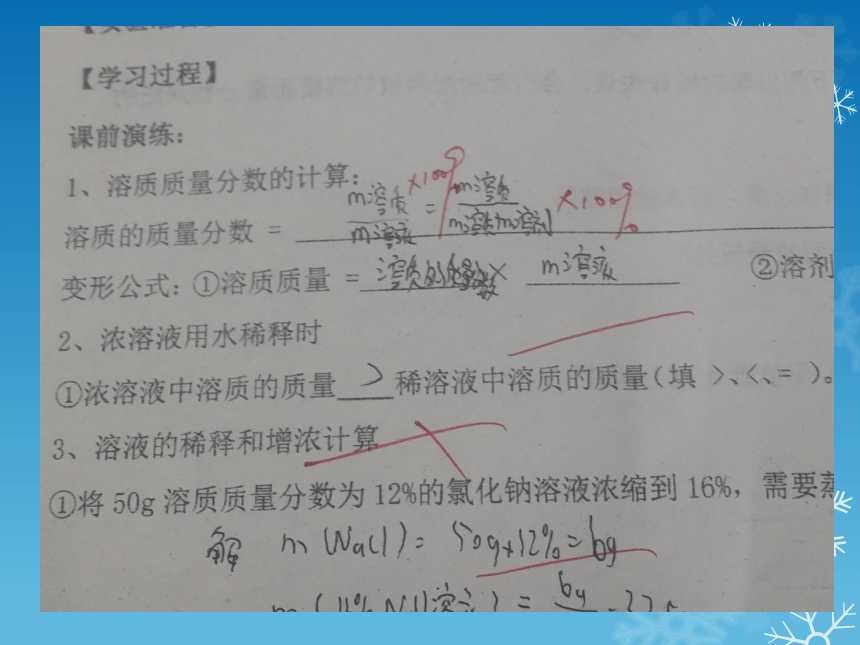 【学习过程】
课前演练：
1、溶质质量分数的计算：
溶质的质量分数 = m溶质/m溶液 ×100% = m溶质/m溶质+m溶剂 ×100%
变形公式：①溶质质量 = 溶质的质量分数× m溶液 ②溶剂
2、浓溶液用水稀释时
①浓溶液中溶质的质量 > 稀溶液中溶质的质量（填 >、<、= ）。
3、溶液的稀释和增浓计算
①将 50g 溶质质量分数为 12%的氯化钠溶液浓缩到 16%，需要蒸
解 m(NaCl)= 50g×12%=6g